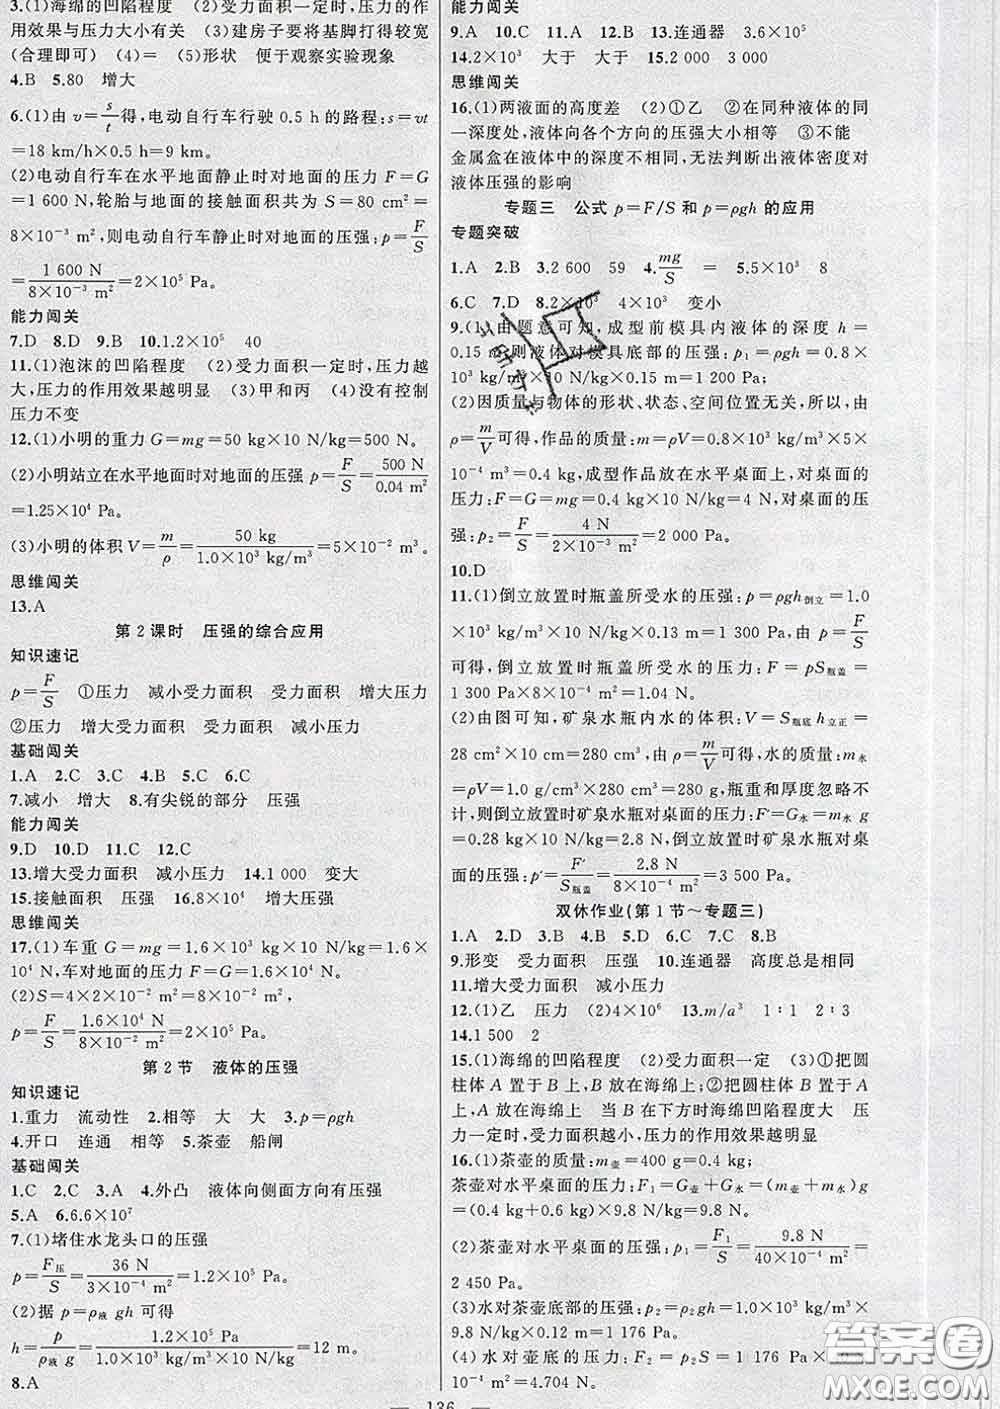 3.(1)海绵的凹陷程度　(2)受力面积一定时,压力的
作用效果与压力大小有关　(3)建房子要将基脚打得较宽
(合理即可)　(4)=　(5)形状　便于观察实验现象
4.B　5.80　增大
6.(1)由 v=s/t 得,电动自行车行驶 0.5 h 的路程:s=vt
=18 km/h×0.5 h=9 km。
(2)电动自行车在水平地面静止时对地面的压力 F=G
=1 600 N,轮胎与地面的接触面积共为 S=80 cm²=
8×10⁻³ m²,则电动自行车静止时对地面的压强:p=F/S
=1 600 N/8×10⁻³ m²=2×10⁵ Pa。
能力闯关
7.D　8.D　9.B　10.1.2×10⁵　40
11.(1)泡沫的凹陷程度　(2)受力面积一定时,压力越
大,压力的作用效果越明显　(3)甲和丙　(4)没有控制
压力不变
12.(1)小明的重力 G=mg=50 kg×10 N/kg=500 N。
(2)小明站立在水平地面时对地面的压强 p=F/S=500 N/0.04 m²
=1.25×10⁴ Pa。
(3)小明的体积 V=m/ρ=50 kg/1.0×10³ kg/m³=5×10⁻² m³。
思维闯关
13.A
第 2 课时　压强的综合应用
知识速记
p=F/S　①压力　减小受力面积　受力面积　增大压力
②压力　增大受力面积　受力面积　减小压力
基础闯关
1.A　2.C　3.C　4.B　5.C　6.C
7.减小　增大　8.有尖锐的部分　压强
能力闯关
9.D　10.D　11.C　12.C
13.增大受力面积　减小压力　14.1 000　变大
15.接触面积　压强　16.8×10⁴　增大压强
思维闯关
17.(1)车重 G=mg=1.6×10³ kg×10 N/kg=1.6×
10⁴ N,车对地面的压力 F=G=1.6×10⁴ N。
(2)S=4×2×10⁻² m²=8×10⁻² m²,
p=F/S=1.6×10⁴ N/8×10⁻² m²=2×10⁵ Pa。
第 2 节　液体的压强
知识速记
1.重力　流动性　2.相等　大　大　3.p=ρgh
4.开口　连通　相等　5.茶壶　船闸
基础闯关
1.C　2.C　3.A　4.外凸　液体向侧面方向有压强
5.A　6.6.6×10⁷
7.(1)堵住水龙头口的压强
p=F压/S=36 N/3×10⁻⁴ m²=1.2×10⁵ Pa。
(2)据 p=ρ液 gh 可得
h=p/ρ液 g=1.2×10⁵ Pa/1.0×10³ kg/m³×10 N/kg=12 m。
8.A
能力闯关
9.A　10.C　11.A　12.B　13.连通器　3.6×10⁵
14.2×10³　大于　大于　15.2 000　3 000
思维闯关
16.(1)两液面的高度差　(2)①乙　②在同种液体的同
一深度处,液体向各个方向的压强大小相等　③不能
金属盒在液体中的深度不相同,无法判断出液体密度对
液体压强的影响
专题三　公式 p=F/S 和 p=ρgh 的应用
专题突破
1.A　2.B　3.2 600　59　4.mg/S　=　5.5×10³　8
6.C　7.D　8.2×10³　4×10³　变小
9.(1)由题意可知,成型前模具内液体的深度 h=
0.15 m,则液体对模具底部的压强:p₁=ρgh=0.8×
10³ kg/m³×10 N/kg×0.15 m=1 200 Pa;
(2)因质量与物体的形状、状态、空间位置无关,所以,由
ρ=m/V可得,作品的质量:m=ρV=0.8×10³ kg/m³×5×
10⁻⁴ m³=0.4 kg,成型作品放在水平桌面上,对桌面的
压力:F=G=mg=0.4 kg×10 N/kg=4 N,对桌面的压
强:p₂=F/S=4 N/2×10⁻³ m²=2 000 Pa。
10.D
11.(1)倒立放置时瓶盖所受水的压强:p=ρgh倒立=1.0
×10³ kg/m³×10 N/kg×0.13 m=1 300 Pa,由 p=F/S
可得,倒立放置时瓶盖所受水的压力:F=pS瓶盖=
1 300 Pa×8×10⁻⁴ m²=1.04 N。
(2)由图可知,矿泉水瓶内水的体积:V=S瓶底 h立正=
28 cm²×10 cm=280 cm³,由 ρ=m/V可得,水的质量:m水
=ρV=1.0 g/cm³×280 cm³=280 g,瓶重和厚度忽略不
计,则倒立放置时矿泉水瓶对桌面的压力:F′=G水=m水 g
=0.28 kg×10 N/kg=2.8 N,倒立放置时矿泉水瓶对桌
面的压强:p′=F′/S瓶盖=2.8 N/8×10⁻⁴ m²=3 500 Pa。
双休作业(第 1 节～专题三)
1.A　2.D　3.B　4.B　5.D　6.C　7.C　8.B
9.形变　受力面积　压强　10.连通器　高度总是相同
11.增大受力面积　减小压力
12.(1)乙　压力　(2)4×10⁶　13.m/a³　1∶1　2∶3
14.1 500　2
15.(1)海绵的凹陷程度　(2)受力面积一定　(3)①把圆
柱体 A 置于 B 上,B 放在海绵上;②把圆柱体 B 置于 A
上,A 放在海绵上　当 B 在下方时海绵凹陷程度大　压
力一定时,受力面积越小,压力的作用效果越明显
16.(1)茶壶的质量:m壶=400 g=0.4 kg;
茶壶对水平桌面的压力:F₁=G壶+G水=(m壶+m水)g
=(0.4 kg+0.6 kg)×9.8 N/kg=9.8 N。
(2)茶壶对水平桌面的压强:p₁=F₁/S=9.8 N/40×10⁻⁴ m²=
2 450 Pa。
(3)水对茶壶底部的压强:p₂=ρgh=1.0×10³ kg/m³×
9.8 N/kg×0.12 m=1 176 Pa。
(4)水对壶底的压力:F₂=p₂S=1 176 Pa×
10⁻⁴ m²=4.704 N。
— 136 —
答案圈
MXQE.COM